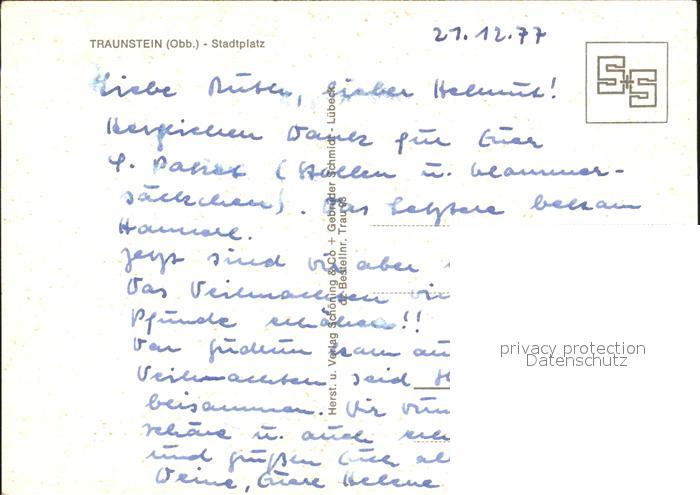 TRAUNSTEIN (Obb.) - Stadtplatz
21.12.77
S+S
Liebe Ruth, lieber Helmut!
Herzlichen Dank für Euer
l. Paket (Stollen u. Klammer-
säckchen). Das letztere bekam
Hannele.
Jetzt sind wir aber
Das Weihnachten wir
Pfunde erhöhen!!
Von Gudrun kam
Weihnachten seid
beisammen. Wir
schöne u. auch
und grüßen Euch
Deine, Euere Helene
Herst. u. Verlag Schöning & Co + Gebrüder Schmidt - Lübeck
Bestellnr. Trau
privacy protection
Datenschutz